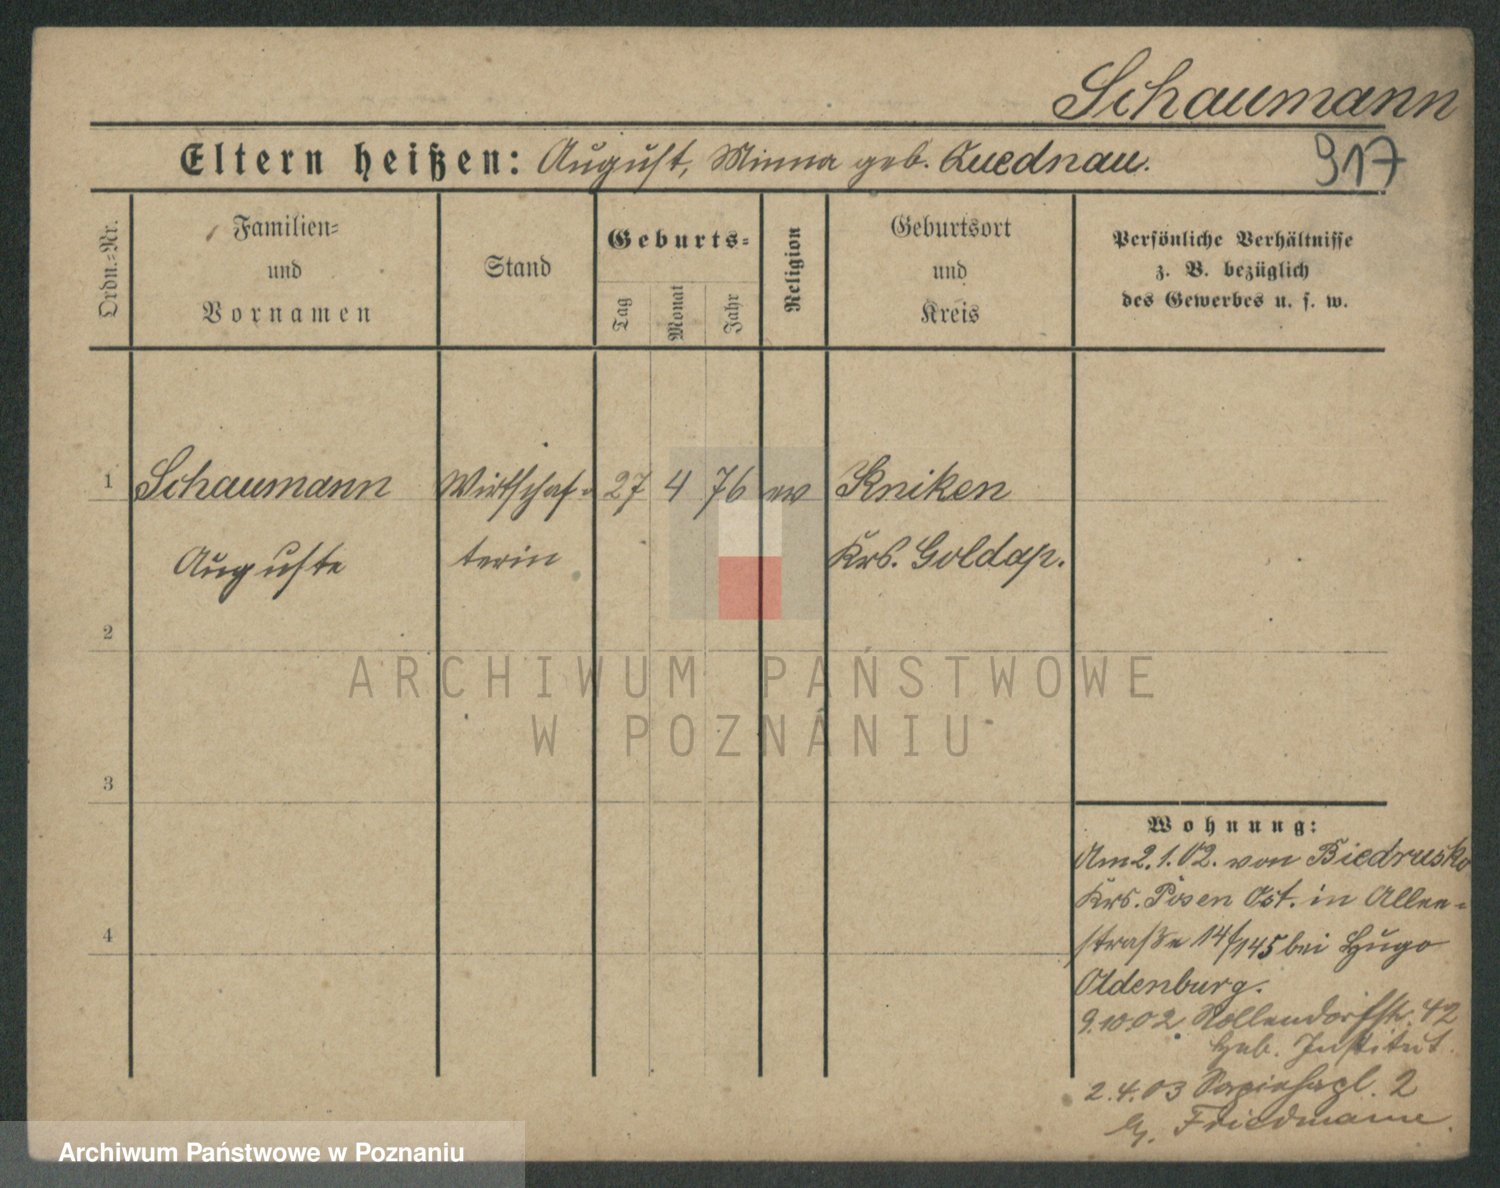 Schaumann
Eltern heißen: August, Minna geb. Quednau.
917
Ordn.-Nr.
Familien-
und
Vornamen
Stand
Geburts-
Tag
Monat
Jahr
Religion
Geburtsort
und
Kreis
Persönliche Verhältnisse
z. B. bezüglich
des Gewerbes u. s. w.
1 Schaumann Wirtschaf- 27 4 76 ev Kniken
Auguste terin Krs. Goldap.
2
ARCHIWUM PAŃSTWOWE
W POZNANIU
3
4
Wohnung:
Am 2.1.02. von Biedrusko
Krs. Posen Ost. in Allee-
straße 14/145 bei Hugo
Oldenburg.
9.10.02 Nollendorfstr. 42
Heb. Institut.
2.4.03 Sapiehapl. 2
Friedmann.
Archiwum Państwowe w Poznaniu